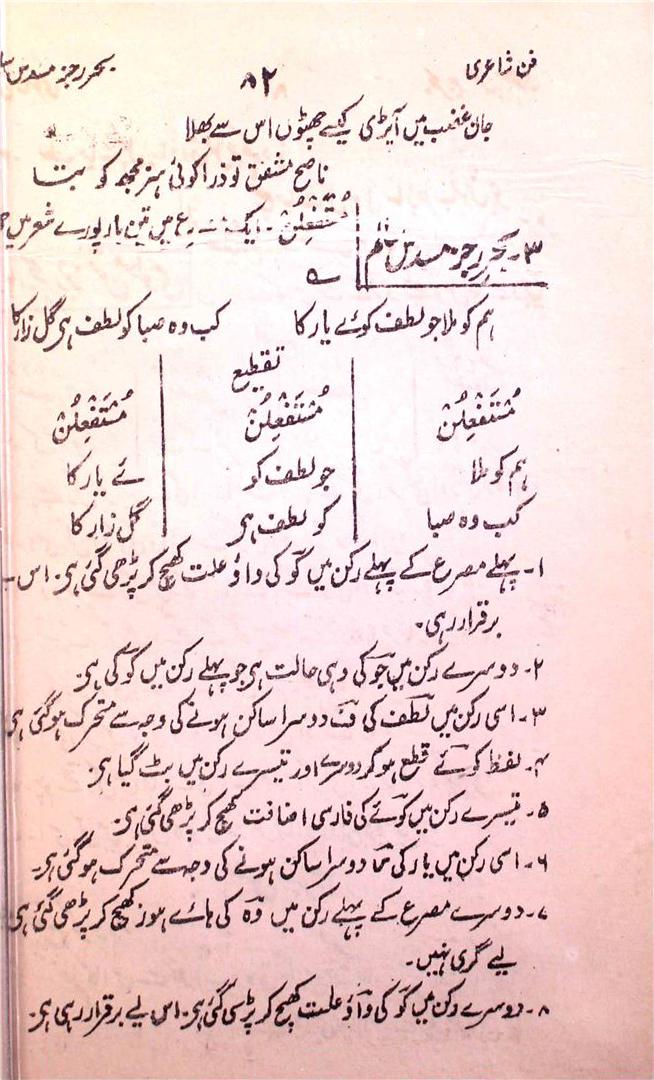 فن شاعری ۸۲ بحر رجز مسدس
جان غضب میں آپڑی کیسے چھٹوں اس سے بھلا
ناصح مشفق تو ذرا کوئی ہنر مجھ کو بتا
۳۔ بحر رجز مسدس سالم مُسْتَفْعِلُنْ۔ ایک مصرع میں تین بار پورے شعر میں
ہم کو ملا جو لطف کوئے یار کا کب وہ صبا کو لطف ہی گل زار کا
تقطیع
مُسْتَفْعِلُنْ مُسْتَفْعِلُنْ مُسْتَفْعِلُنْ
ہم کو ملا جو لطف کو ئے یار کا
کب وہ صبا کو لطف ہی گل زار کا
۱۔ پہلے مصرع کے پہلے رکن میں کو کی واؤ علت کھچ کر پڑھی گئی ہی۔ اس
برقرار رہی۔
۲۔ دوسرے رکن میں جو کی وہی حالت ہی جو پہلے رکن میں کو کی ہی۔
۳۔ اسی رکن میں لطف کی ف دوسرا ساکن ہونے کی وجہ سے متحرک ہو گئی ہی
۴۔ لفظ کوئے قطع ہو کر دوسرے اور تیسرے رکن میں بٹ گیا ہی۔
۵۔ تیسرے رکن میں کوئے کی فارسی اضافت کھچ کر پڑھی گئی ہی۔
۶۔ اسی رکن میں یار کی ر دوسرا ساکن ہونے کی وجہ سے متحرک ہو گئی ہی۔
۷۔ دوسرے مصرع کے پہلے رکن میں وہ کی ہائے ہوز کھچ کر پڑھی گئی ہی
لیے گری نہیں۔
۸۔ دوسرے رکن میں کو کی واؤ علت کھچ کر پڑھی گئی ہی۔ اس لیے برقرار رہی ہی۔